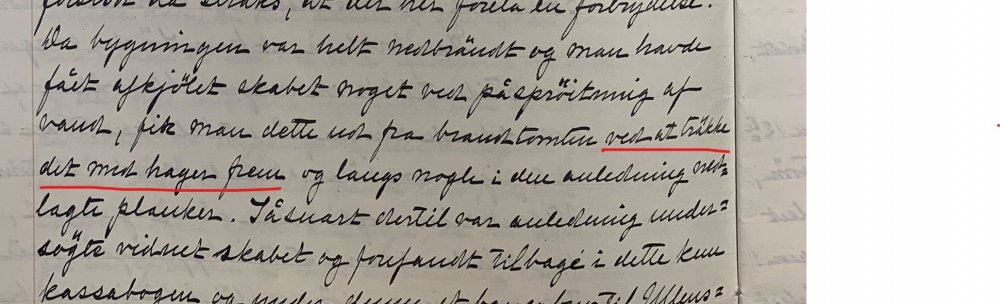 forstod da straks, at det her forelå en forbrydelse.
Da bygningen var helt nedbrändt og man havde
fået afkjölet skabet noget ved påspröitning af
vand, fik man dette ud fra brandtomten ved at träkke
det med hager frem og langs nogle i den anledning ned=
lagte planker. Såsnart dertil var anledning under=
sögte vidnet skabet og forefandt tilbage i dette kun
kassabogen og under denne et